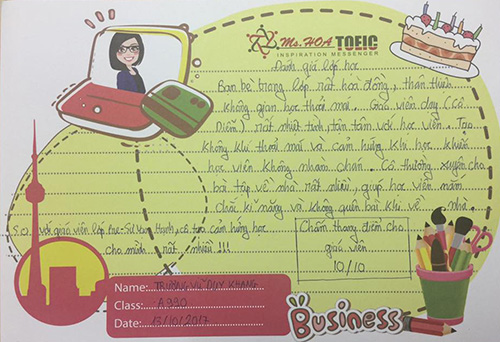 Ms.HOA TOEIC
INSPIRATION MESSENGER
Đánh giá lớp học
Bạn bè trong lớp rất hoà đồng, thân thiện
Không gian học thoải mái. Giáo viên dạy (Cô
Diễm) rất nhiệt tình, tận tâm với học viên. Tạo
không khí thoải mái và cảm hứng khi học, khiến
học viên không nhàm chán. Cô thường xuyên cho
bài tập về nhà rất nhiều, giúp học viên nắm
chắc kĩ năng và không quên bài khi về nhà.
với giáo viên lớp Hạnh, cô tạo cảm hứng học
cho mình rất nhiều !!!
Chấm thang điểm cho
giáo viên
10/10
Name: TRƯƠNG VŨ DUY KHANG
Class: A930
Date: 13/10/2017
Business